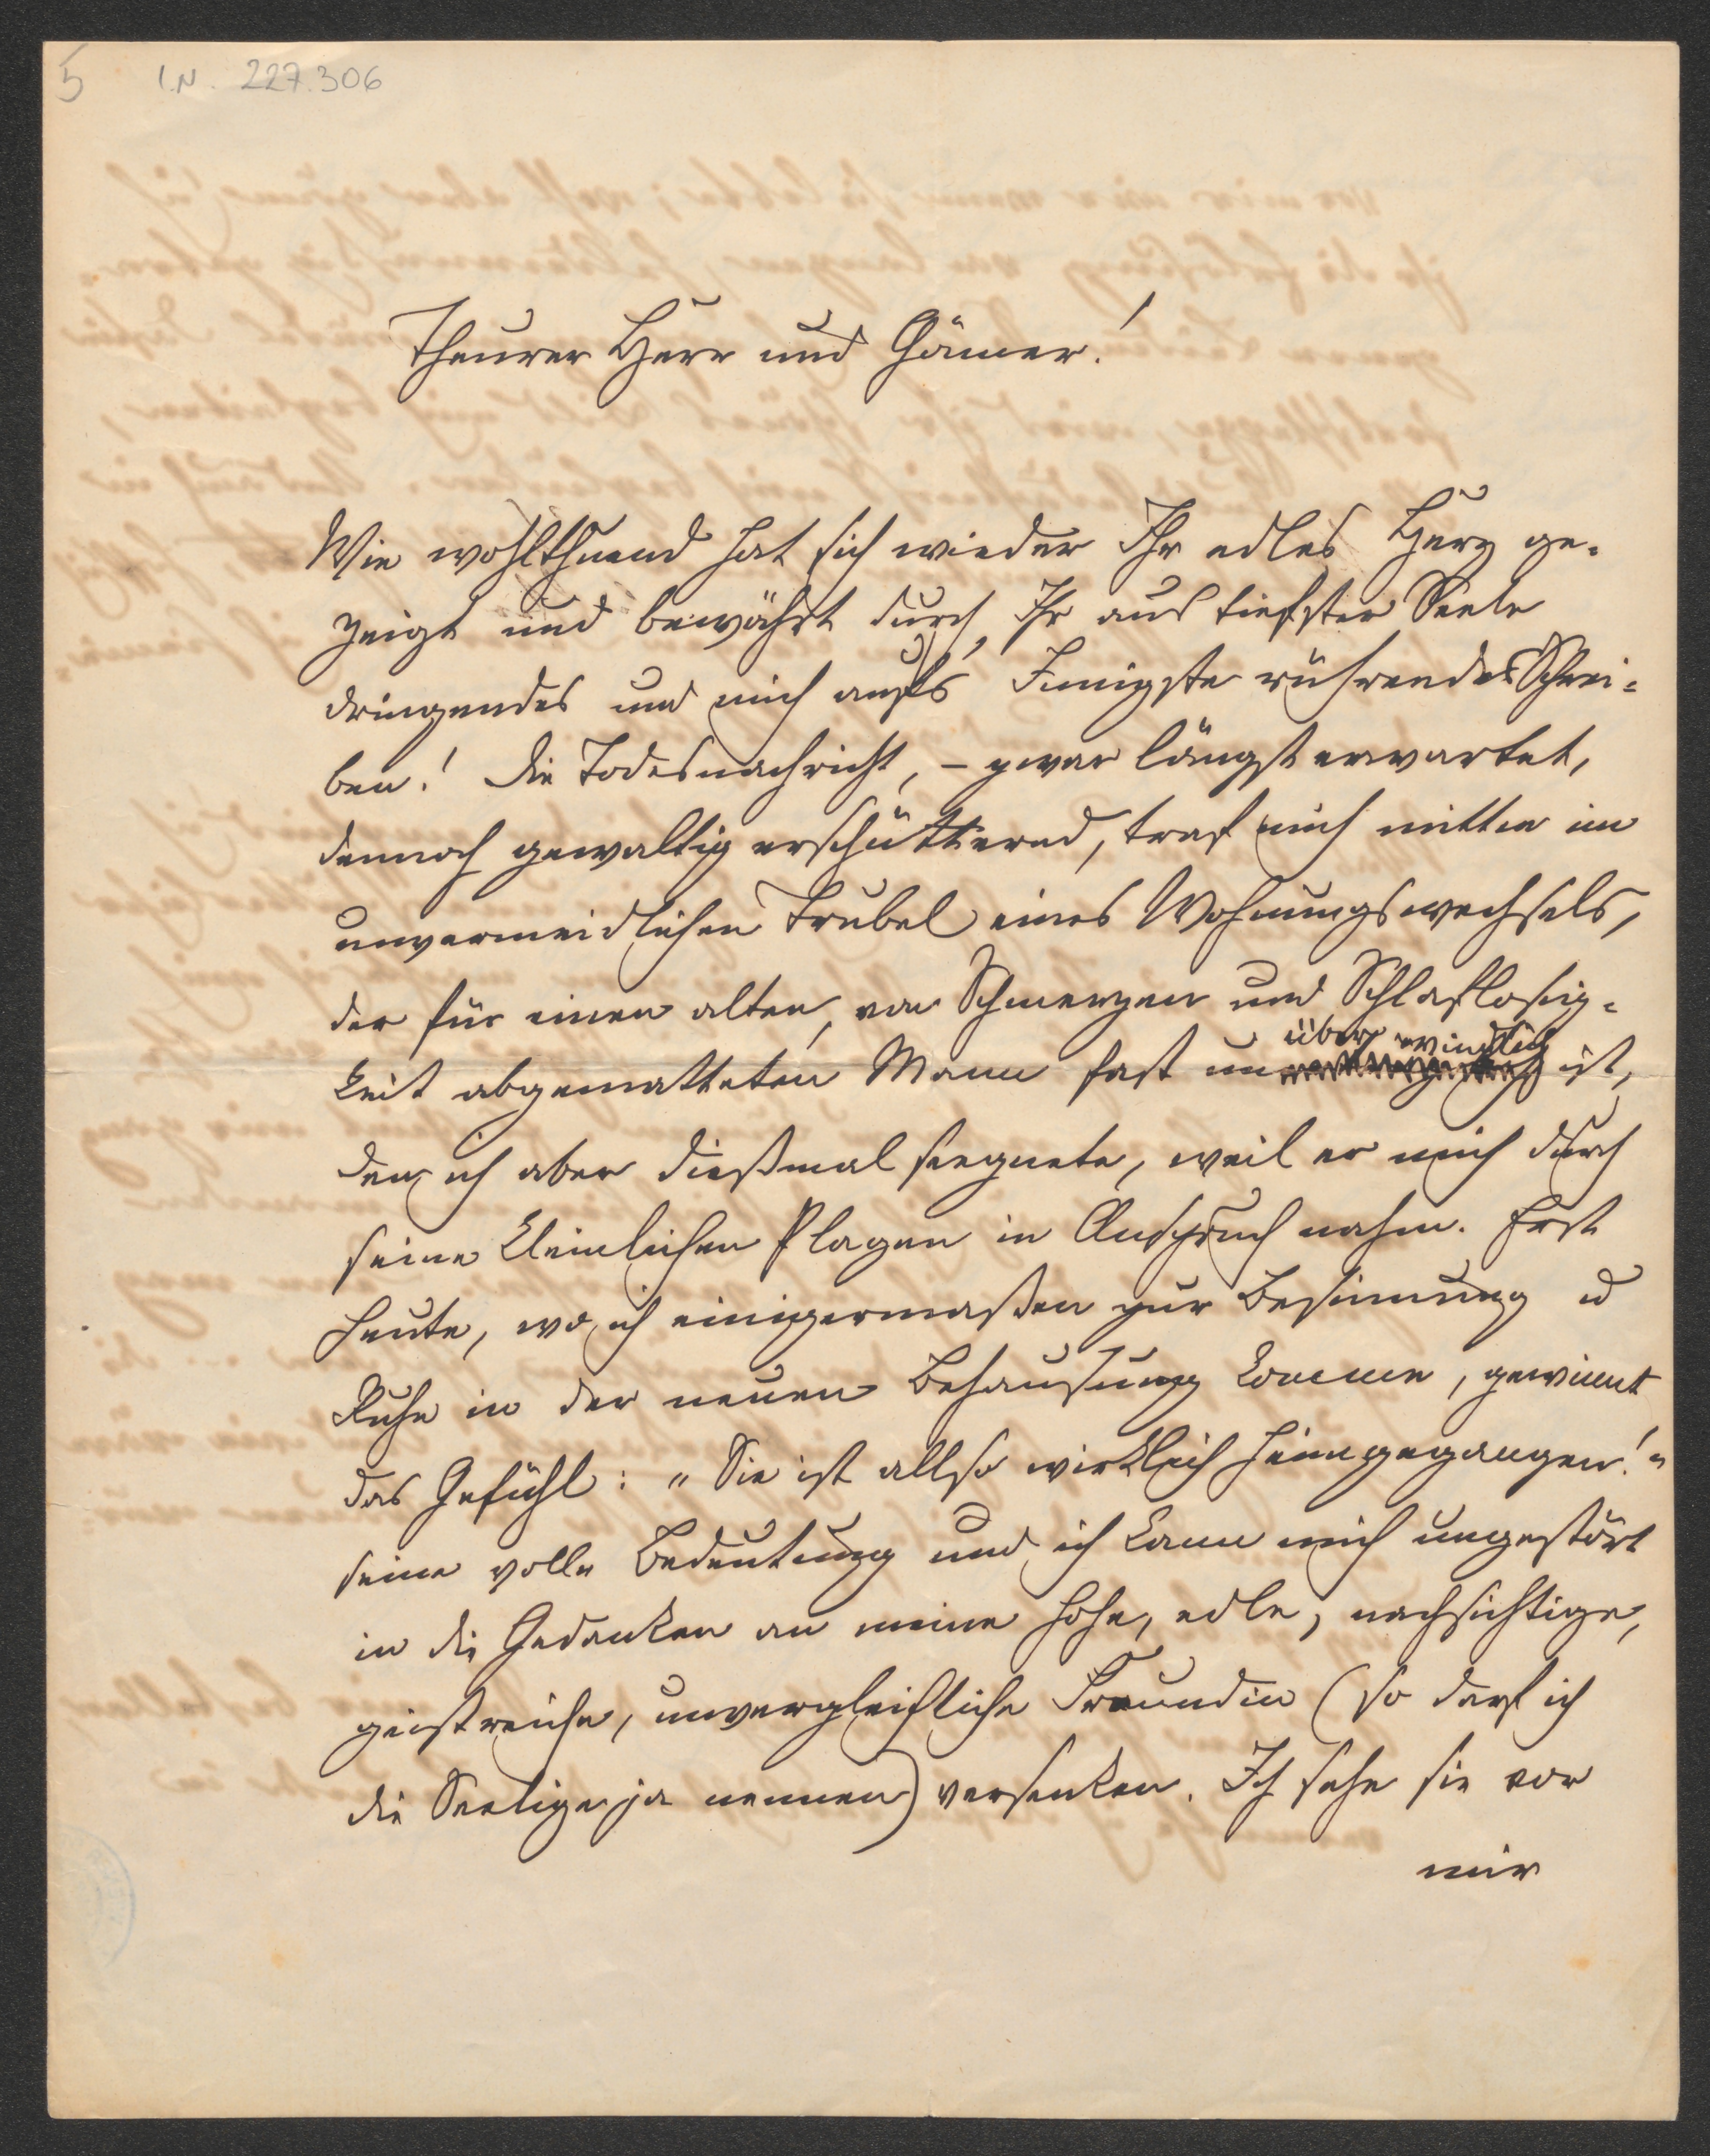 5 I.N. 227.306
Theurer Herr und Gönner!
Wie wohlthuend hat sich wieder Ihr edles Herz ge-
zeigt und bewährt durch Ihr aus tiefster Seele
dringendes und mich aufs Innigste rührendes Schrei-
ben! Die Todesnachricht, – zwar längst erwartet,
dennoch gewaltig erschütternd, traf mich mitten im
unvermeidlichen Trubel eines Wohnungswechsels,
der für einen alten, von Schmerzen und Schlaflosig-
keit abgematteten Mann fast unüberwindlich ist,
den ich aber dießmal segnete, weil er mich durch
seine kleinlichen Plagen in Anspruch nahm. Erst
heute, wo ich einigermaßen zur Besinnung u
Ruhe in der neuen Behausung komme, gewinnt
das Gefühl: „Sie ist allso wirklich heimgegangen!"
seine volle Bedeutung und ich kann mich ungestört
in die Gedanken an meine hohe, edle, nachsichtige,
geistreiche, unvergleichliche Freundin (so darf ich
die Seelige ja nennen) versenken. Ich sehe sie vor
mir